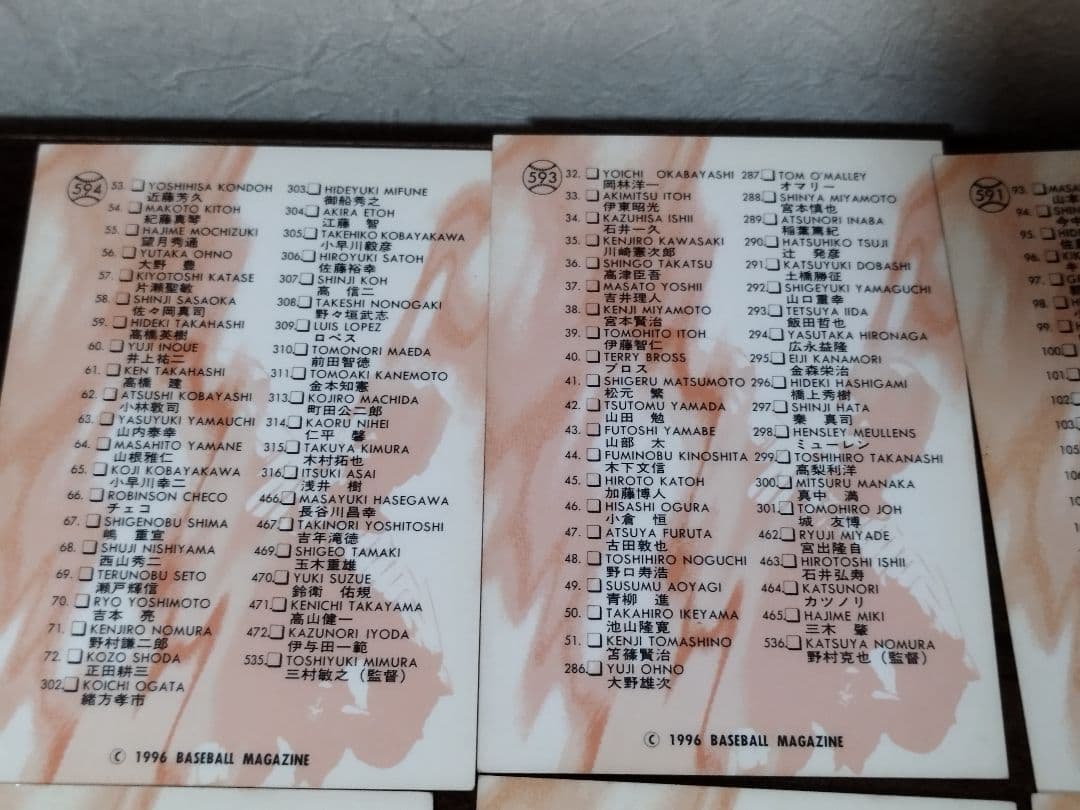 594
53. YOSHIHISA KONDOH
近藤芳久
54. MAKOTO KITOH
紀藤真琴
55. HAJIME MOCHIZUKI
望月秀通
56. YUTAKA OHNO
大野 豊
57. KIYOTOSHI KATASE
片瀬聖敏
58. SHINJI SASAOKA
佐々岡真司
59. HIDEKI TAKAHASHI
高橋英樹
60. YUJI INOUE
井上祐二
61. KEN TAKAHASHI
高橋 建
62. ATSUSHI KOBAYASHI
小林敦司
63. YASUYUKI YAMAUCHI
山内泰幸
64. MASAHITO YAMANE
山根雅仁
65. KOJI KOBAYAKAWA
小早川幸二
66. ROBINSON CHECO
チェコ
67. SHIGENOBU SHIMA
嶋 重宣
68. SHUJI NISHIYAMA
西山秀二
69. TERUNOBU SETO
瀬戸輝信
70. RYO YOSHIMOTO
吉本 亮
71. KENJIRO NOMURA
野村謙二郎
72. KOZO SHODA
正田耕三
302. KOICHI OGATA
緒方孝市
303. HIDEYUKI MIFUNE
御船秀之
304. AKIRA ETOH
江藤 智
305. TAKEHIKO KOBAYAKAWA
小早川毅彦
306. HIROYUKI SATOH
佐藤裕幸
307. SHINJI KOH
高 信二
308. TAKESHI NONOGAKI
野々垣武志
309. LUIS LOPEZ
ロペス
310. TOMONORI MAEDA
前田智徳
311. TOMOAKI KANEMOTO
金本知憲
313. KOJIRO MACHIDA
町田公二郎
314. KAORU NIHEI
仁平 馨
315. TAKUYA KIMURA
木村拓也
316. ITSUKI ASAI
浅井 樹
466. MASAYUKI HASEGAWA
長谷川昌幸
467. TAKINORI YOSHITOSHI
吉年滝徳
469. SHIGEO TAMAKI
玉木重雄
470. YUKI SUZUE
鈴衛 佑規
471. KENICHI TAKAYAMA
高山健一
472. KAZUNORI IYODA
伊与田一範
535. TOSHIYUKI MIMURA
三村敏之(監督)
© 1996 BASEBALL MAGAZINE
593
32. YOICHI OKABAYASHI
岡林洋一
33. AKIMITSU ITOH
伊東昭光
34. KAZUHISA ISHII
石井一久
35. KENJIRO KAWASAKI
川崎憲次郎
36. SHINGO TAKATSU
高津臣吾
37. MASATO YOSHII
吉井理人
38. KENJI MIYAMOTO
宮本賢治
39. TOMOHITO ITOH
伊藤智仁
40. TERRY BROSS
ブロス
41. SHIGERU MATSUMOTO
松元 繁
42. TSUTOMU YAMADA
山田 勉
43. FUTOSHI YAMABE
山部 太
44. FUMINOBU KINOSHITA
木下文信
45. HIROTO KATOH
加藤博人
46. HISASHI OGURA
小倉 恒
47. ATSUYA FURUTA
古田敦也
48. TOSHIHIRO NOGUCHI
野口寿浩
49. SUSUMU AOYAGI
青柳 進
50. TAKAHIRO IKEYAMA
池山隆寛
51. KENJI TOMASHINO
笘篠賢治
286. YUJI OHNO
大野雄次
287. TOM O'MALLEY
オマリー
288. SHINYA MIYAMOTO
宮本慎也
289. ATSUNORI INABA
稲葉篤紀
290. HATSUHIKO TSUJI
辻 発彦
291. KATSUYUKI DOBASHI
土橋勝征
292. SHIGEYUKI YAMAGUCHI
山口重幸
293. TETSUYA IIDA
飯田哲也
294. YASUTAKA HIRONAGA
広永益隆
295. EIJI KANAMORI
金森栄治
296. HIDEKI HASHIGAMI
橋上秀樹
297. SHINJI HATA
秦 真司
298. HENSLEY MEULLENS
ミューレン
299. TOSHIHIRO TAKANASHI
高梨利洋
300. MITSURU MANAKA
真中 満
301. TOMOHIRO JOH
城 友博
462. RYUJI MIYADE
宮出隆自
463. HIROTOSHI ISHII
石井弘寿
464. KATSUNORI
カツノリ
465. HAJIME MIKI
三木 肇
536. KATSUYA NOMURA
野村克也(監督)
© 1996 BASEBALL MAGAZINE
591
93.
94.
95.
96.
97.
98.
99.
100.
101.
102.
103.